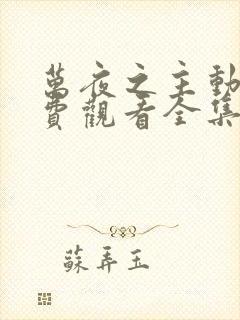 萬夜之主動
費觀看全集
蘇弄玉